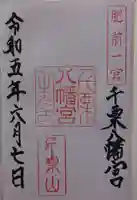 肥前一宮
千栗八幡宮
八幡宮
千栗山
令和五年六月七日